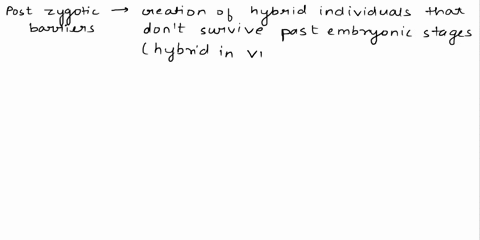 Post zygotic → creation of hybrid individuals that
barriers don't survive past embryonic stages
(hybrid in vi